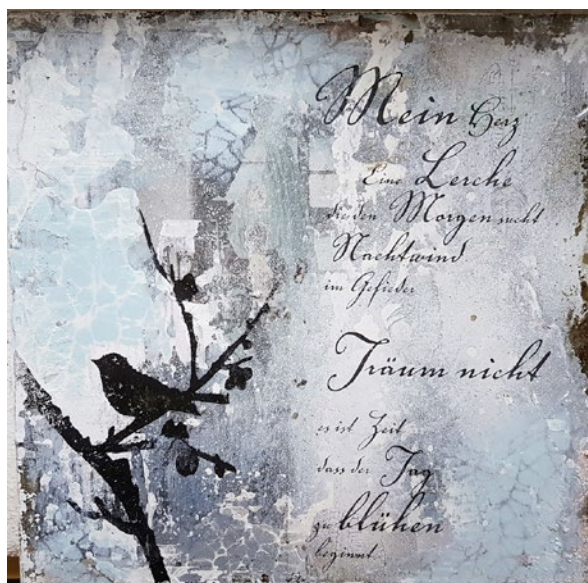 Mein Herz
Eine Lerche
die den Morgen sucht
Nachtwind
im Gefieder
Träum nicht
es ist Zeit
dass der Tag
zu blühen
beginnt